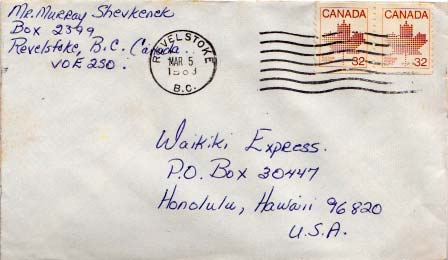 Mr. Murray Shevkenek
Box 2399
Revelstoke, B.C. Canada..
V0E 2S0.
REVELSTOKE
MAR 5
B.C.
CANADA CANADA
32 32
Waikiki Express.
P.O. Box 30447
Honolulu, Hawaii 96820
U.S.A.